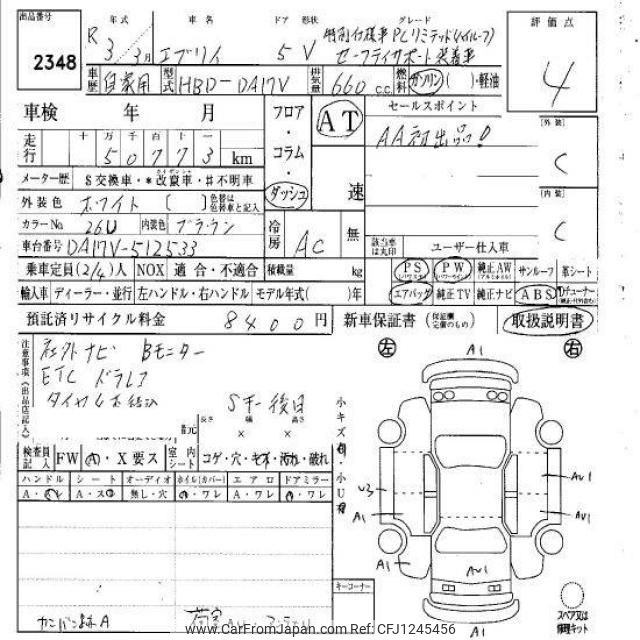 出品番号 年式 車名 ドア 形状 グレード 評価点
2348
R 3/3月 エブリイ 5 V 特別仕様車 PCリミテッド(ハイルーフ)
セーフティサポート装着車
4
車歴 自家用 型式 HBD-DA17V 排気量 660 c.c. 燃料 ガソリン( )・軽油
車検 年 月 フロア・コラム・ダッシュ AT 速 セールスポイント
AA初出品!
走行 十 万 千 百 十 一
50773 km
[外装] C
メーター歴 $交換車・*改竄車・#不明車
外装色 ホワイト ( ) 色替は色替車と記入
[内装] C
カラーNo. 26U 内装色 ブラウン
冷房 AC 無 該当車は丸印 ユーザー仕入車
車台番号 DA17V-512533
PS PW 純正AW サンルーフ 革シート
乗車定員(2/4)人 NOX 適合・不適合 積載量 kg
エアバッグ 純正TV 純正ナビ ABS
輸入車 ディーラー・並行 左ハンドル・右ハンドル モデル年式( )年
預託済リサイクル料金 8400円 新車保証書 (保証欄完備のもの) 取扱説明書
注意事項(出品店記入)
社外ナビ Bモニター
ETC ドラレコ
Sキー後日
長さ 幅 高さ
× ×
左 右
A1
小キズ・小U有
検査員記入 FW A・X要ス 室内シート コゲ・穴・キズ・汚れ・破れ
ハンドル シート オーディオ ホイル(カバー) エアロ ドアミラー
A・スレ A・スレ 無し・穴 A・ワレ A・ワレ A・ワレ
U3
A1
AU1
AU1
A1
AU1
A1
キーコーナー
カンバン跡A
スペア又は修理キット
www.CarFromJapan.com Ref: CFJ1245456